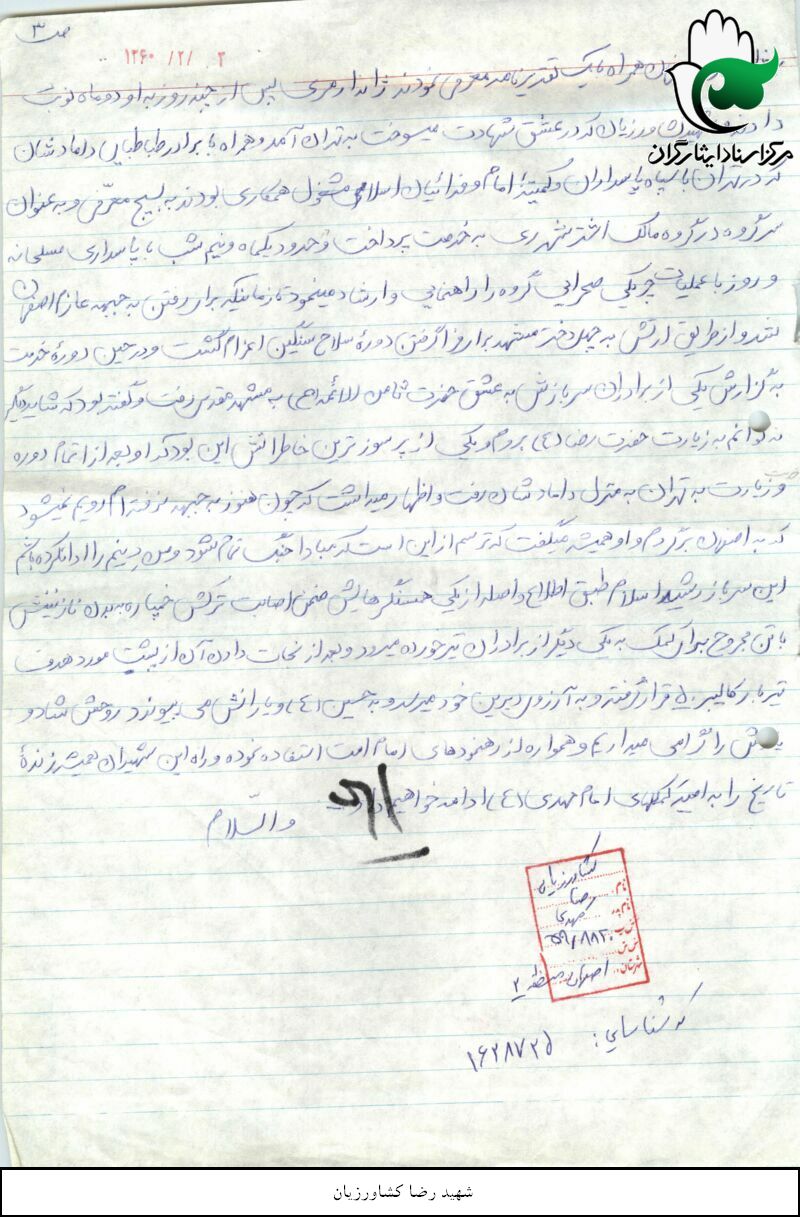 ص ۳
۱۳۶۰ /۲/ ۲
مرکز اسناد ایثارگران
همراه بایک تقدیرنامه معرفی نمودند ژاندارمری پس از چند روز به او دو ماه نوبت
دادند و شهید کشاورزیان که در عشق شهادت میسوخت به تهران آمد و همراه با برادر طباطبایی دامادشان
که در تهران با سپاه پاسداران و کمیتهٔ امام و فدائیان اسلام مشغول همکاری بودند به بسیج معرفی و به عنوان
سرگروه در گروه مالک اشتر شهر ری به خدمت پرداخت و حدود یکماه و نیم شب با پاسداری مسلحانه
و روز با عملیات چریکی صحرایی گروه را راهنمایی و ارشاد مینمود تا زمانیکه برای رفتن به جبهه عازم اصفهان
شد و از طریق ارتش به چهل دختر مشهد برای فراگرفتن دورهٔ سلاح سنگین اعزام گشت و در حین دورهٔ خدمت
به گزارش یکی از برادران سربازش به عشق حضرت ثامن الائمه (ع) به مشهد مقدس رفت و گفته بود که شاید دیگر
نتوانم به زیارت حضرت رضا (ع) بروم و یکی از پر سوز ترین خاطراتش این بود که او بعد از اتمام دوره
و زیارت به تهران به منزل دامادشان رفت و اظهار میداشت که چون هنوز به جبهه نرفته ام رویم نمیشود
که به اصفهان برگردم و او همیشه میگفت که ترسم از این است که مبادا جنگ تمام شود و من دینم را ادا نکرده باشم
این سرباز رشید اسلام طبق اطلاع واصله از یکی همسنگرهایش ضمن اصابت ترکش خمپاره به بدن نازنینش
با تن مجروح برای کمک به یکی دیگر از برادران تیر خورده میرود و بعد از نجات دادن آن از پشت مورد هدف
تیربار کالیبر ۵۰ قرار گرفته و به آرزوی دیرین خود میرسد و به حسین (ع) و یارانش می پیوندد روحش شاد و
یادش را گرامی میداریم و همواره از رهنمودهای امام امت استفاده نموده و راه این شهیدان همیشه زندهٔ
تاریخ را به امید کمکهای امام مهدی (ع) ادامه خواهیم داد
والسلام
کشاورزیان
نام رضا
نام پدر مهدی
ش پ ۵۹/۸۸۲۰
ش ش
شهرستان اصفهان منطقه ۲
کد شناسایی: ۱۶۲۸۷۲۵
شهید رضا کشاورزیان